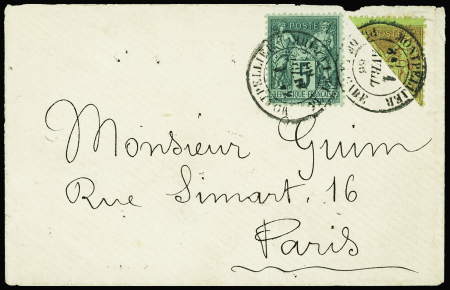 POSTE
5
RÉPUBLIQUE FRANÇAISE
MONTPELLIER
MONTPELLIER
AVRIL
Monsieur Guim
Rue Simart, 16
Paris